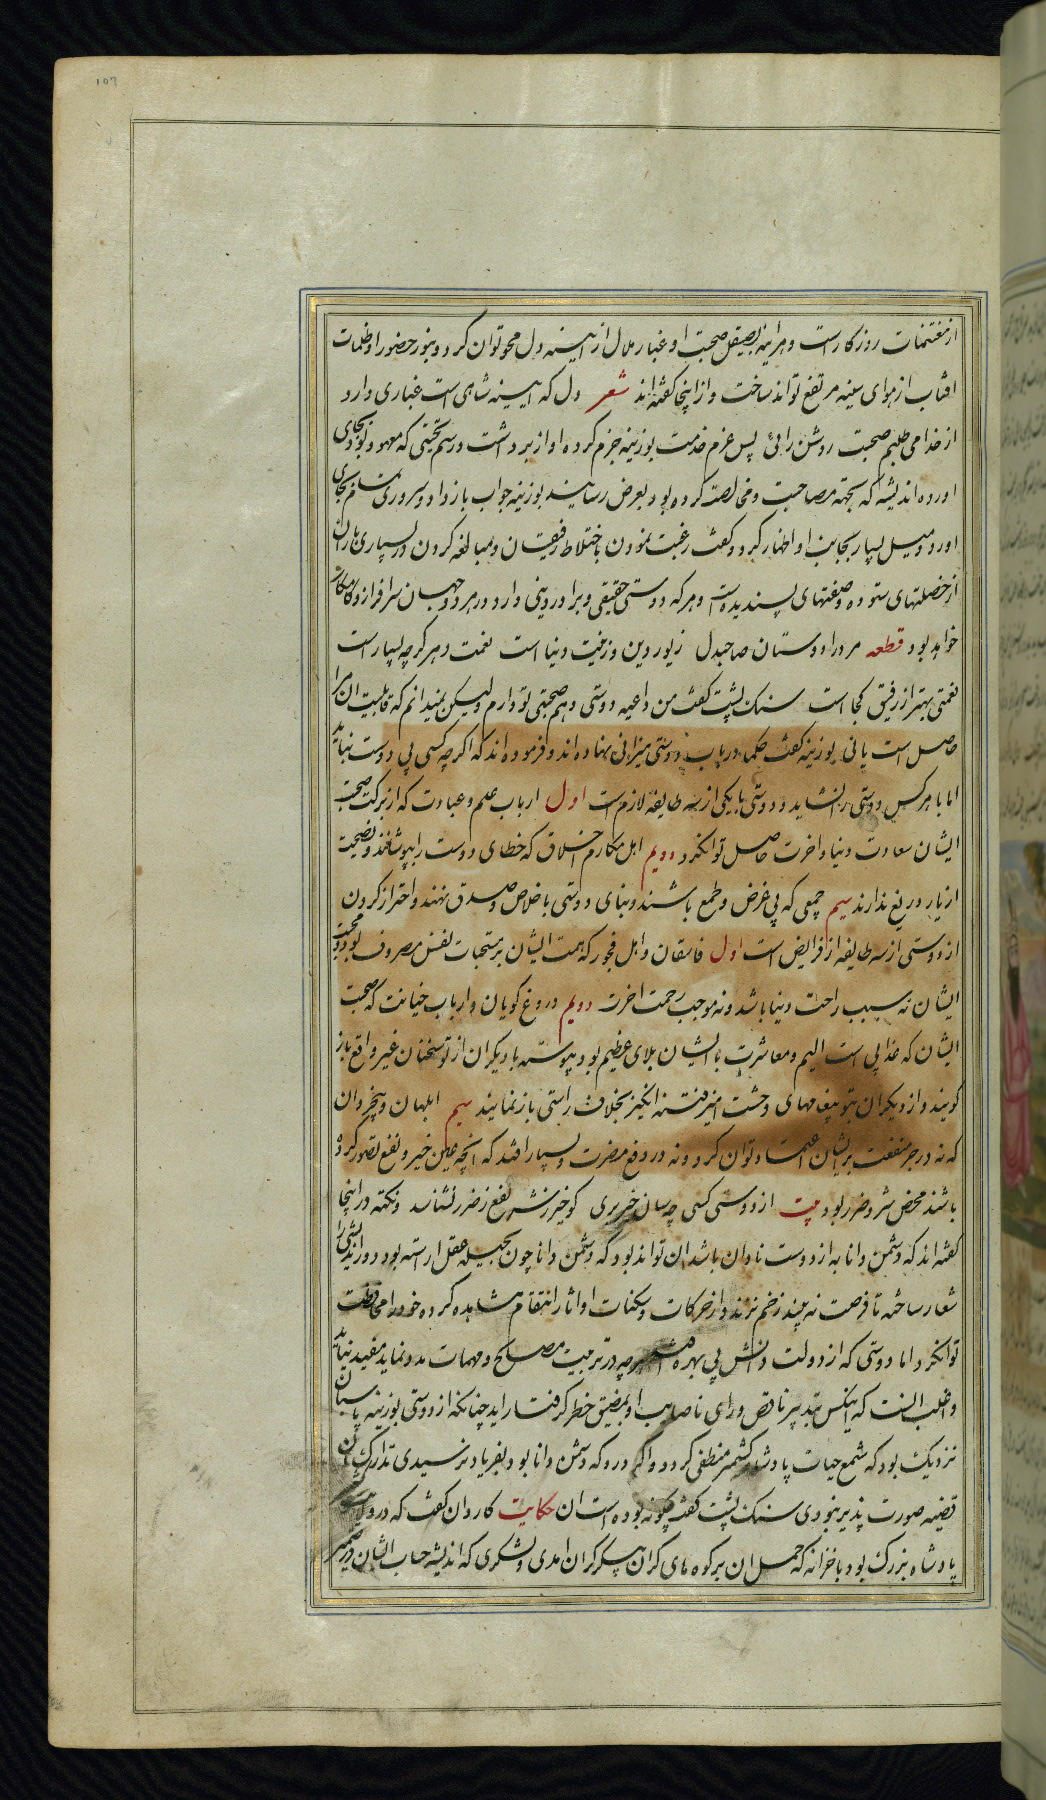 107
از مغتنمات روزکارست و هراینه بصیقل صحبت او غبار ملال از اینه دل محو توان کرد و بنور حضور او ظلمات
از هوای سینه مرتفع تواند ساخت و از اینجا کفته اند شعر دل که ایینه شاهی است غباری دارد
از خدا می طلبم صحبت روشن رائی پس عزم خدمت بوزینه جزم کرده اواز برداشت و رسم تحیتی که معهود بود بجای
اورده اندیشه که بجهة مصاحبت و مخالصت کرده بود بعرض رسانید بوزینه جواب باز داد و سروری تمام بجای
اورد و میل بسیار بجانب او اظهار کرد و کفت رغبت نمودن باختلاط رفیقان و مبالغه کردن در بسیاری یاران
از خصلتهای ستوده و صفتهای پسندیده است و هرکه دوستی حقیقی و برادر دینی دارد در هر دو جهان سرافراز و کامکار
خواهد بود قطعه مرد را دوستان صاحبدل زیور دین و زینت دنیا است نعمت دهر کرچه بسیار است
نعمتی بهتر از رفیق کجا است سنک پشت کفت من داعیه دوستی و هم صحبتی تو دارم و لیکن نمیدانم که قابلیت ان مرا
حاصل است یا نی بوزینه کفت حکما در باب دوستی میزانی نهاده اند و فرموده اند که اکرچه کسی بی دوست نباید
اما با هر کس دوستی را نشاید و دوستی با یکی از سه طایفه لازم است اول ارباب علم و عبادت که از برکت صحبت
ایشان سعادت دنیا و اخرت حاصل توانکرد دویم اهل مکارم اخلاق که خطای دوست را بپوشانند و نصیحت
از یار دریغ ندارند سیم جمعی که بی غرض و طمع باشند و بنای دوستی باخلاص و صدق نهند و احتراز کردن
از دوستی از سه طایفه از فرایض است اول فاسقان و اهل فجور که همت ایشان بر مستحبات نفس مصروف بود و محبت
ایشان نه سبب راحت دنیا باشد و نه موجب رحمت اخرت دویم دروغ کویان و ارباب خیانت که صحبت
ایشان که عذابی است الیم و معاشرت با ایشان بلای عظیم بود پیوسته با دیکران از تو سخنان غیر واقع باز
کویند و از دیکران بتو پیغامهای وحشت امیز فتنه انکیز بخلاف راستی باز نمایند سیم ابلهان و بیخردان
که نه در جر منفعت بر ایشان اعتماد توان کرد و نه در دفع مضرت و بسیار افتد که انچه عین خیر و نفع تصور کرده
باشند محض شر و ضرر بود بیت از دوستی کسی چه سان برخوری کو خیر ز شر نفع ز ضرر نشناسد و نکته در اینجا
کفته اند که دشمن دانا به از دوست نادان باشد ان تواند بود که دشمن دانا چون بحیله عقل اراسته بود دور اندیشی را
شعار ساخته تا فرصت نه بیند زخم نزند و از حرکات و سکنات او اثار انتقام مشاهده کرده خود را محافظت
توانکرد اما دوستی که از دولت دانش بی بهره باشد هرچه در تربیت مصالح و مهمات مدد نماید مفید نیاید
و اغلب انست که اینکس بتدبیر ناقص و رای ناصایب او بمضیق خطر کرفتار اید چنانکه از دوستی بوزینه پاسبان
نزدیک بود که شمع حیات پادشاه کشمیر منطفی کردد و اکر دزد که دشمن دانا بود بفریاد نرسیدی تدارک ان
قضیه صورت پذیر نبودی سنک پشت کفت چکونه بوده است ان حکایت کاردان کفت که در ولایت کشمیر
پادشاه بزرک بود با خزانه که حمل ان بر کوه های کران پیکر کران امدی و لشکری که اندیشه حساب ایشان در ضمیر